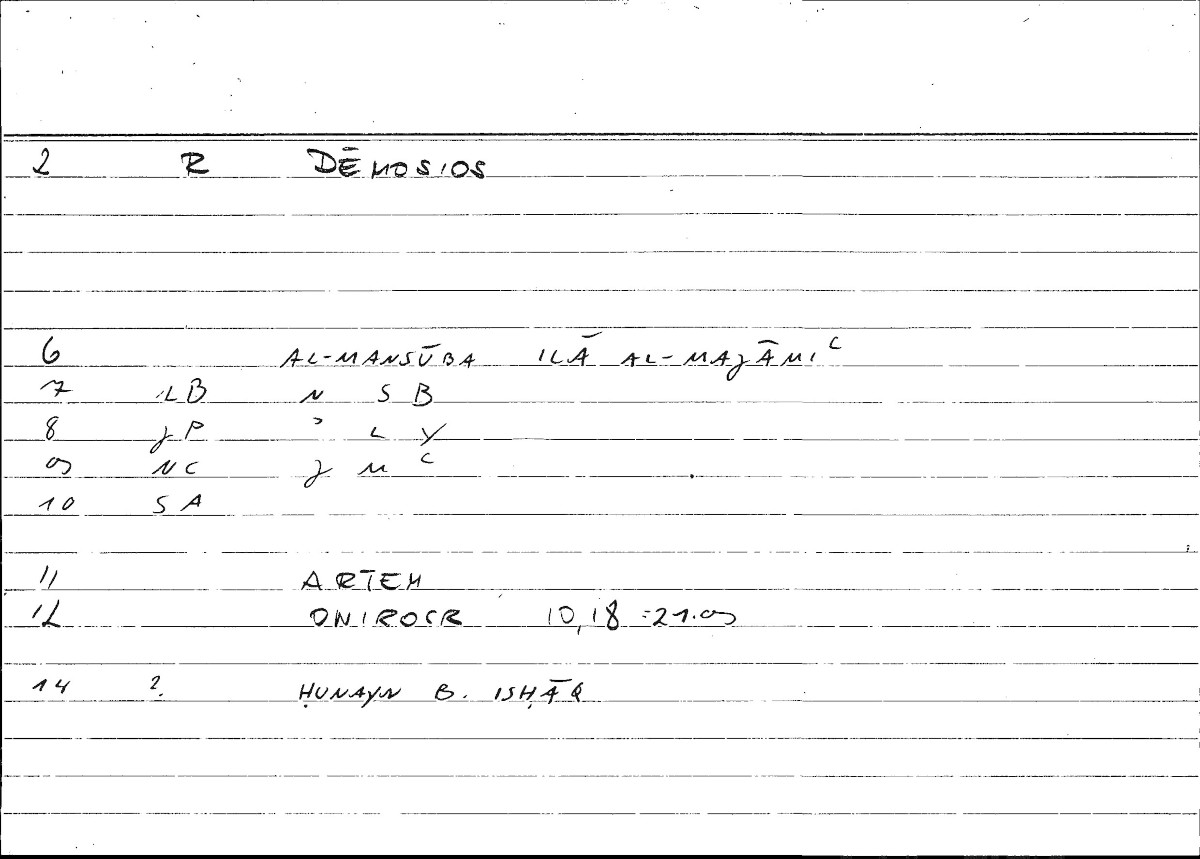 2 R DĒMOSIOS
6 AL-MANSŪBA ILĀ AL-MAJĀMIʿ
7 LB N S B
8 JP ʾ L Y
9 NC J M ʿ
10 SA
11 ARTEM
12 ONIROCR 10,18 = 21.9
14 2. ḤUNAYN B. ISḤĀQ